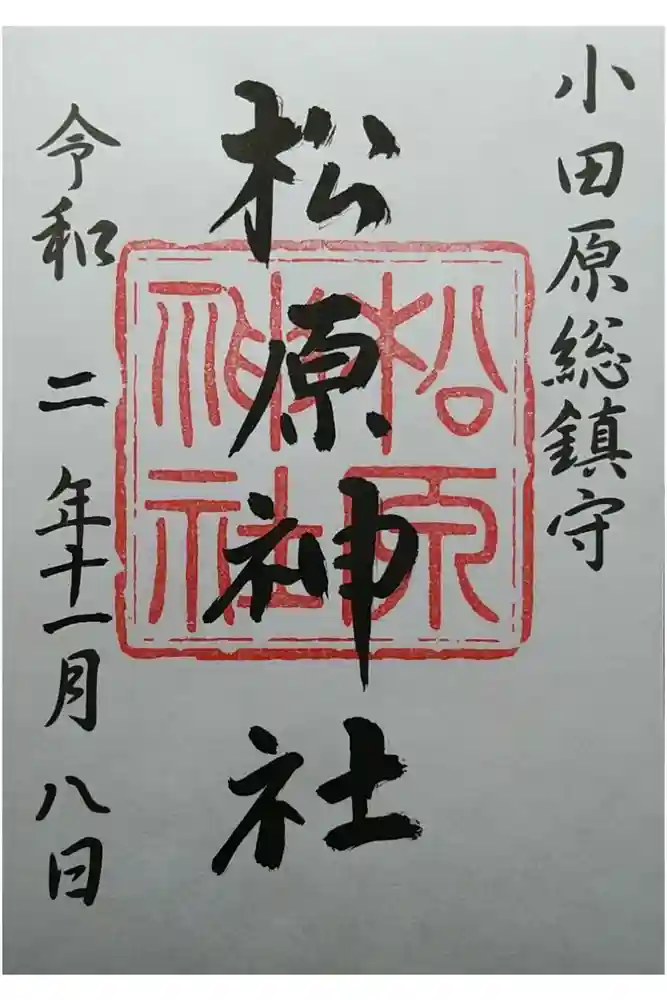 小田原総鎮守
松原神社
松原神社
令和二年十一月八日